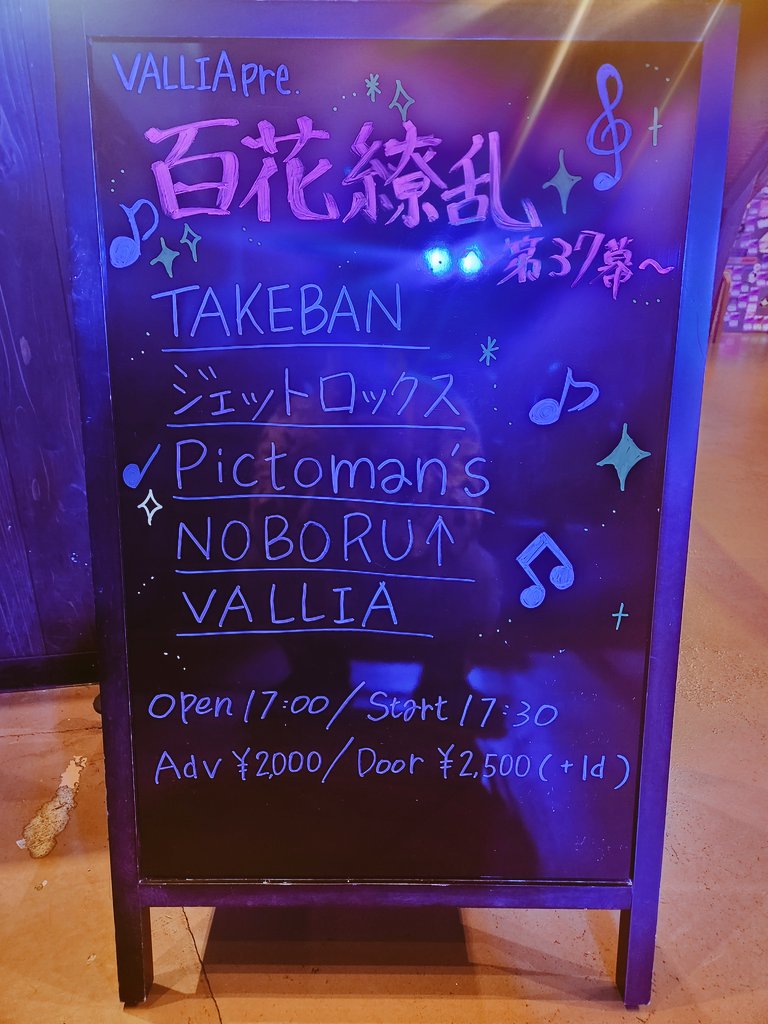 VALLIA pre.
百花繚乱
第37幕〜
TAKEBAN
ジェットロックス
Pictoman's
NOBORU↑
VALLIA
Open 17:00 / Start 17:30
Adv ¥2,000 / Door ¥2,500 (+1d)